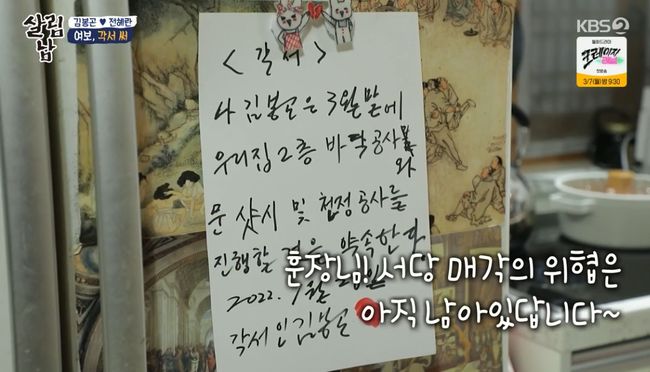 살림남
김봉곤 ♥ 전혜란
여보, 각서 써
KBS2
크레이지
첫방송
3/7(월) 밤 9:30
<각서>
나 김봉곤은 3월 말에
우리집 2층 바닥공사
와
문 샷시 및 천정공사를
진행할 것을 약속한다
2022. 1월
각서인 김봉곤
훈장님! 서당 매각의 위협은
아직 남아있답니다~